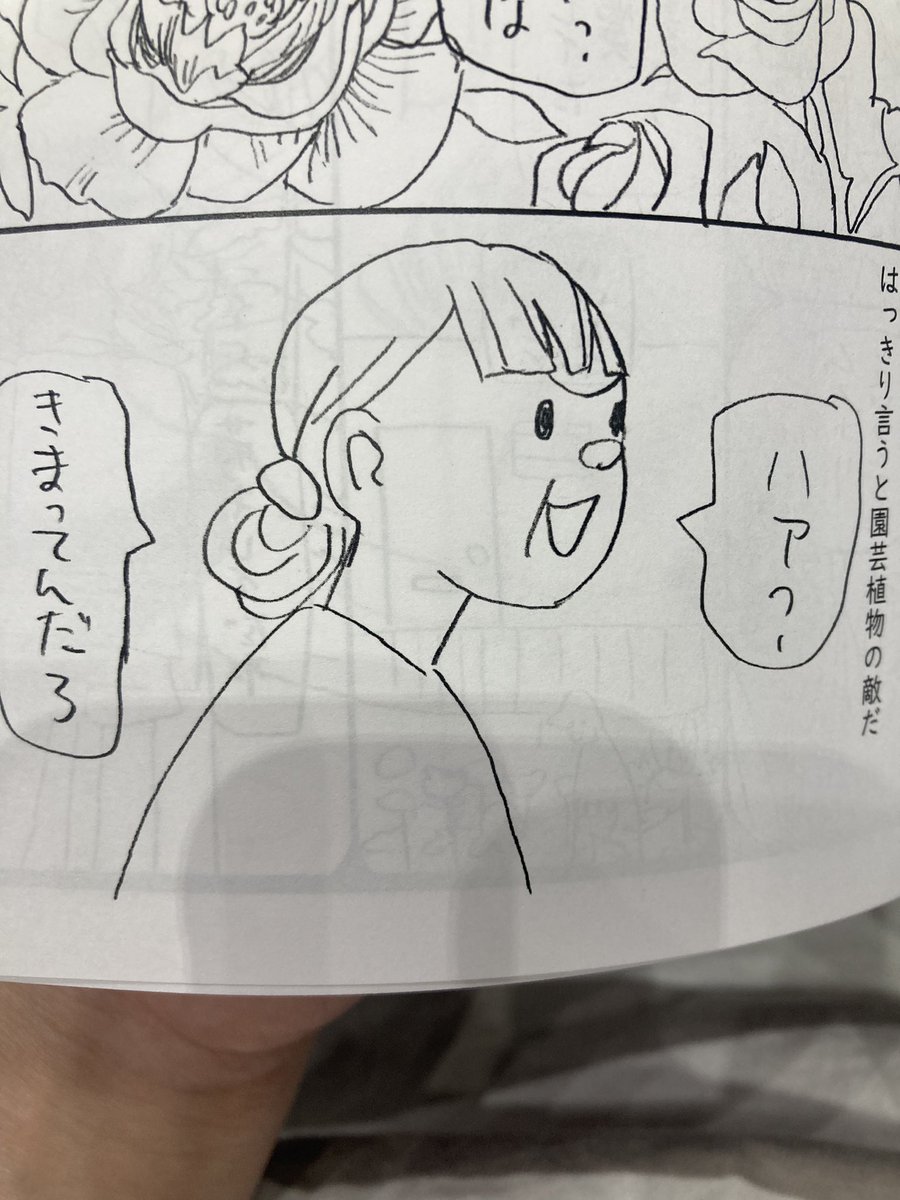 は
はっきり言うと園芸植物の敵だ
ハァっ
きまってんだろ